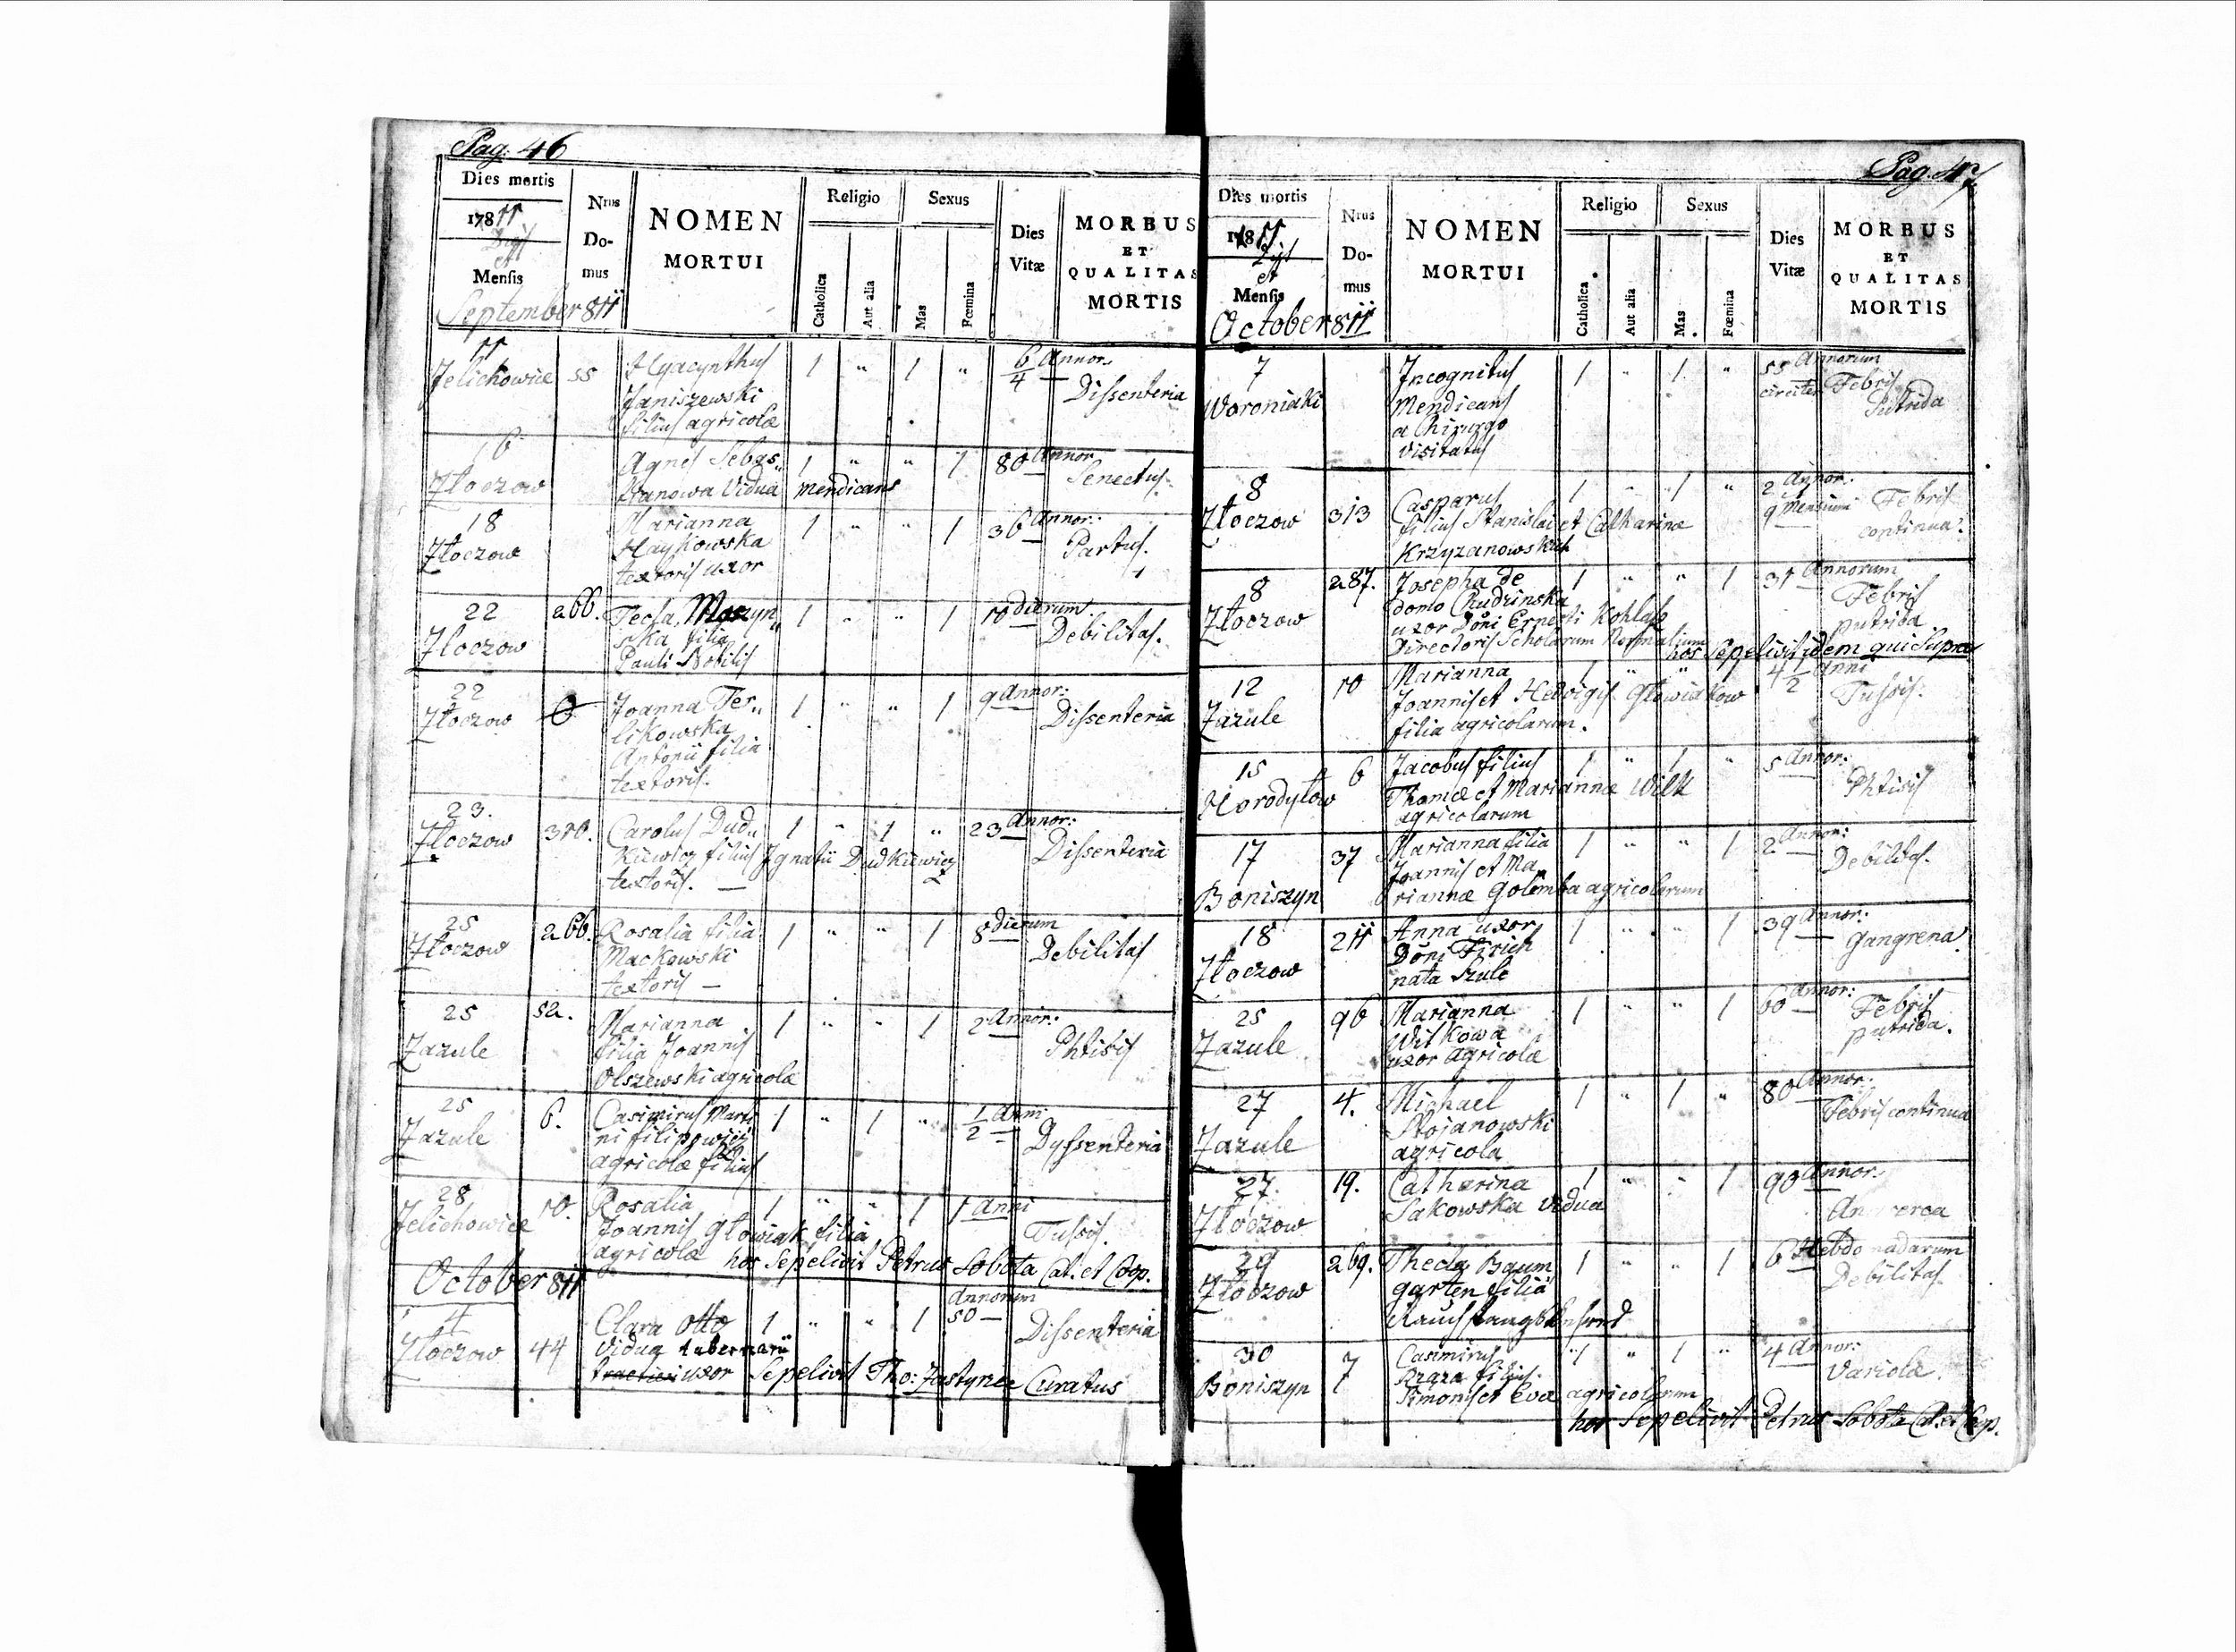 Pag. 46
Dies mortis
Nrus Domus
NOMEN MORTUI
Religio
Catholica
Aut alia
Sexus
Mas
Fœmina
Dies Vitæ
MORBUS ET QUALITAS MORTIS
17811
et
Mensis
September 811
11 Jelichowice 55 Hyacynthus 1 " 1 " 6/4 Annor. Dissenteria
Janiszewski
filius agricolæ
16 Złoczow Agnes Sebas„ 1 " " 1 80 Annor. Senectus.
tianowa Vidua mendicans
18 Złoczow Marianna 1 " " 1 36 Annor. Partus.
Haykowska
textoris uxor
22 Złoczow 266. Tecla Moszyn„ 1 " " 1 10 dierum Debilitas.
ska filia
Pauli Nobilis
22 Złoczow Joanna Ter„ 1 " " 1 9 Annor: Dissenteria
likowska
Antonii filia
textoris.
23. Złoczow 310. Carolus Dud„ 1 " 1 " 23 Annor: Dissenteria
kiewicz filius Ignatii Dudkiewicz
textoris. —
25 Złoczow 266. Rosalia filia 1 " " 1 8 dierum Debilitas
Mackowski
textoris —
25 Zazule 52. Marianna 1 " " 1 2 Annor: Phtisis
filia Joannis
Olszewski agricolæ
25 Zazule 6. Casimirus Marti 1 " 1 " 1/2 Anni Dyssenteria
ni filipowicz
agricolæ filius
28 Jelichowice 10. Rosalia 1 " " 1 1 Anni Tussis.
Joannis Głowiak filia
agricolæ hos Sepelivit Petrus Sobota Cat. et Coop.
October 811
4 Złoczow 44 Clara Otto 1 " " 1 Annorum 50 — Dissenteria
Vidua tabernarii
uxor Sepelivit Tho: Zastyrec Curatus
Pag. 47
Dies mortis
Nrus Domus
NOMEN MORTUI
Religio
Catholica
Aut alia
Sexus
Mas
Fœmina
Dies Vitæ
MORBUS ET QUALITAS MORTIS
1811
et
Mensis
October 811
7 Woroniaki Incognitus 1 " 1 " 55 Annorum circiter Febris Putrida
Mendicans
a Chirurgo
visitatus
8 Złoczow 313 Casparus 1 " 1 " 2 Annor: 9 Mensium Febris continua.
filius Stanislai et Catharinæ
Krzyzanowskich
8 Złoczow 287. Josepha de 1 " " 1 31 Annorum Febris putrida
domo Chudzinska
uxor Dõni Ernesti Kohlab
Directoris Scholarum Normalium
hos Sepelivit idem qui Supra
12 Zazule 10 Marianna 1 " " 4 1/2 Anni Tussis.
Joannis et Hedvigis Głowiakow
filia agricolarum.
15 Horodyłow 6 Jacobus filius 1 " 1 " 5 Annor: Phtisis
Thomæ et Mariannæ Wilk
agricolarum
17 Boniszyn 37 Marianna filia 1 " " 1 2 Annor: Debilitas.
Joannis et Ma„
riannæ Golemba agricolarum
18 Złoczow 211 Anna uxor 1 " " 1 39 Annor: Gangrena
Dõni Firich
nata Szule
25 Zazule 96 Marianna 1 " " 1 60 Annor: Febris putrida.
Witkowa
uxor agricolæ
27 Zazule 4. Michael 1 " 1 " 80 Annor: Febris continua
Stojanowski
agricola
27 Złoczow 19. Catharina 1 " " 1 90 Annor:
Sakowska Vidua
29 Złoczow 269. Thecla Baum 1 " " 1 6 Hebdomadarum Debilitas.
garten filia
30 Boniszyn 7 Casimirus 1 " 1 " 4 Annor: Variolæ.
filius
Simonis et Eva agricolarum
hos Sepelivit Petrus Sobota Cat. et Coop.